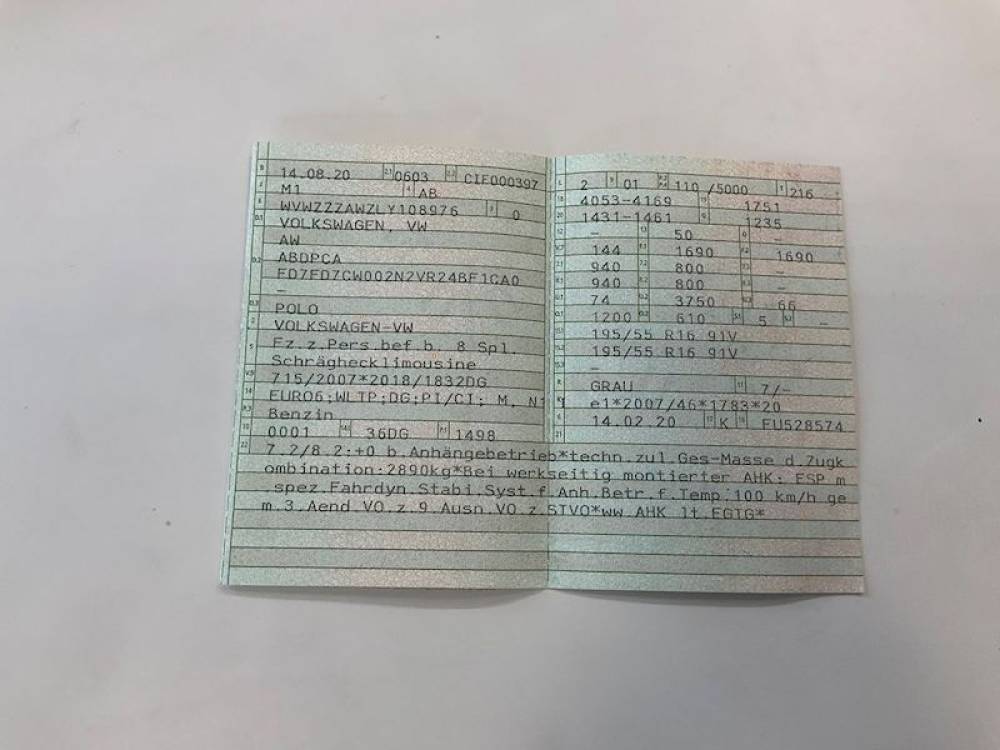 14.08.20 0603 CIE000397
M1 AB
WVWZZZAWZLY108976 0
VOLKSWAGEN, VW
AW
ABDPCA
FD7FD7CW002N2VR24BF1CA0
–
POLO
VOLKSWAGEN-VW
Fz.z.Pers.bef.b. 8 Spl.
Schräghecklimousine
715/2007*2018/1832DG
EURO6;WLTP;DG;PI/CI; M, N1
Benzin
0001 36DG 1498
2 01 110 /5000 216
4053-4169 1751
1431-1461 1235
– 50 –
144 1690 1690
940 800 –
940 800 –
74 3750 66
1200 610 5 –
195/55 R16 91V
195/55 R16 91V
–
GRAU 7/-
e1*2007/46*1783*20
14.02.20 K FU528574
7.2/8.2:+0 b.Anhängebetrieb*techn.zul.Ges-Masse d.Zugk
ombination:2890kg*Bei werkseitig montierter AHK: ESP m
.spez.Fahrdyn.Stabi.Syst.f.Anh.Betr.f.Temp.100 km/h ge
m.3.Aend.VO.z.9.Ausn.VO.z.STVO*ww.AHK lt.EGTG*